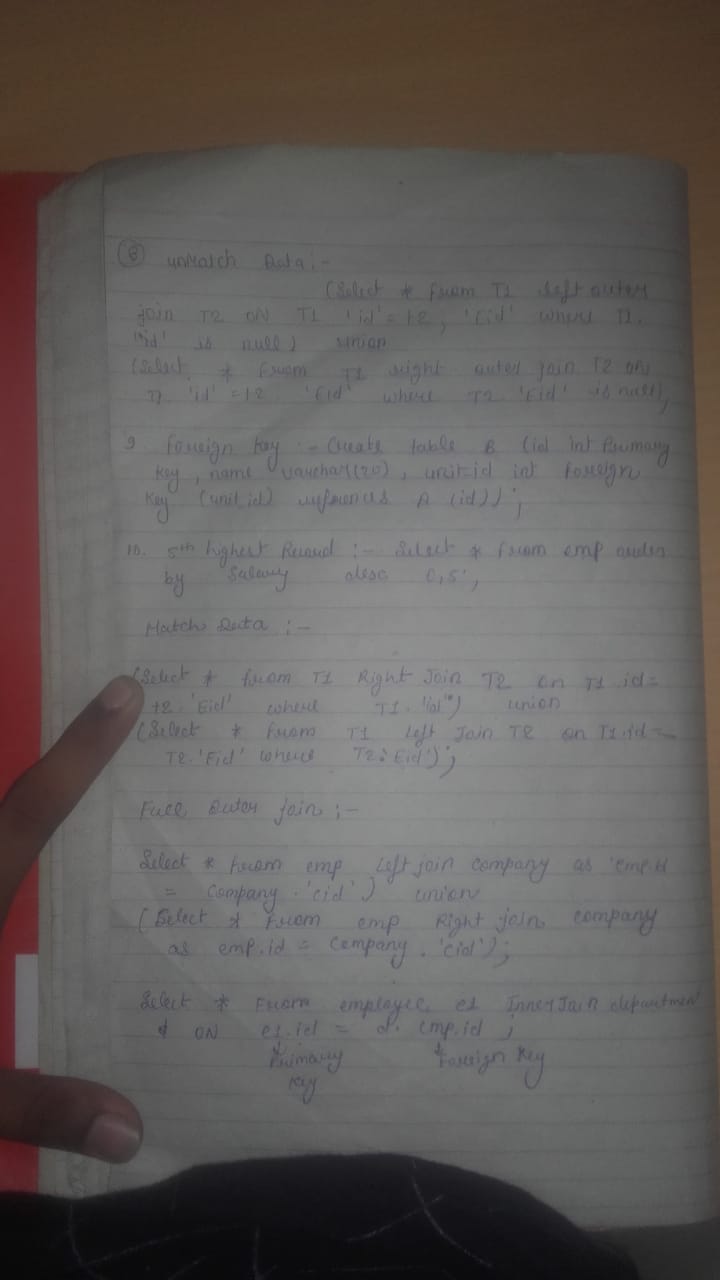 ⑧ unMatch Data :-
(Select * from T1 left outer
join T2 ON T1 'id' = t2, 'Eid' where T1.
'id' is null) union
(Select * from T1 right outer join T2 on
'id' = t2 'Eid' where T2 'Eid' is null),
9 foreign key :- Create table B (id int Primary
key, name varchar(20), unit-id int foreign
key (unit_id) references A (id));
10. 5th highest Record :- Select * from emp order
by Salary desc 0,5;
Match Data :-
(Select * from T1 Right Join T2 on T1.id=
t2.'Eid' where T1.'id') union
(Select * from T1 left Join T2 on T1.id=
T2.'Eid' where T2.'Eid');
Full Outer join :-
Select * from emp left join company as 'emp.id
= Company.'cid') union
(Select * From emp Right join company
as emp.id = Company.'cid');
Select * From employee e1 Inner Join department
d ON e1.id = d.emp.id;
Primary Foreign Key
key